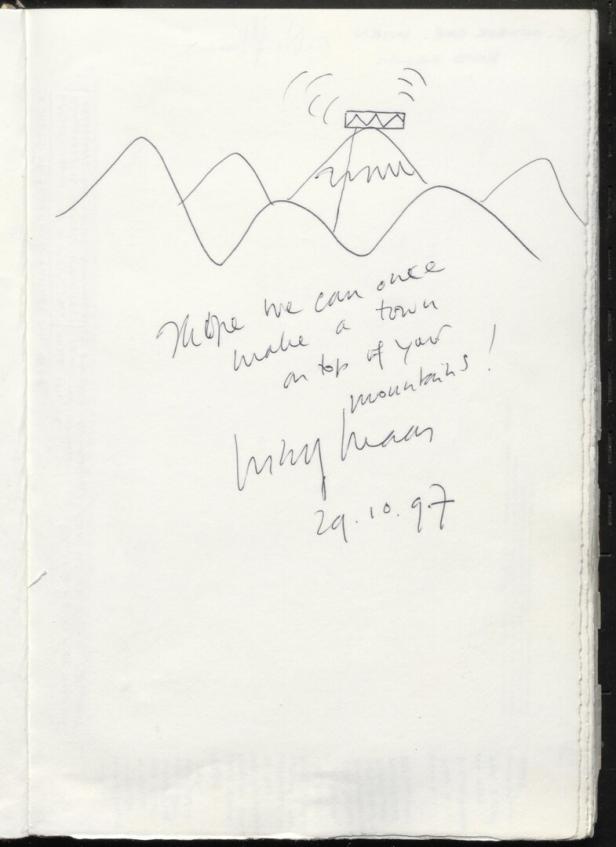 I hope we can once
make a town
on top of your
mountains!
Winy Maas
29.10.97